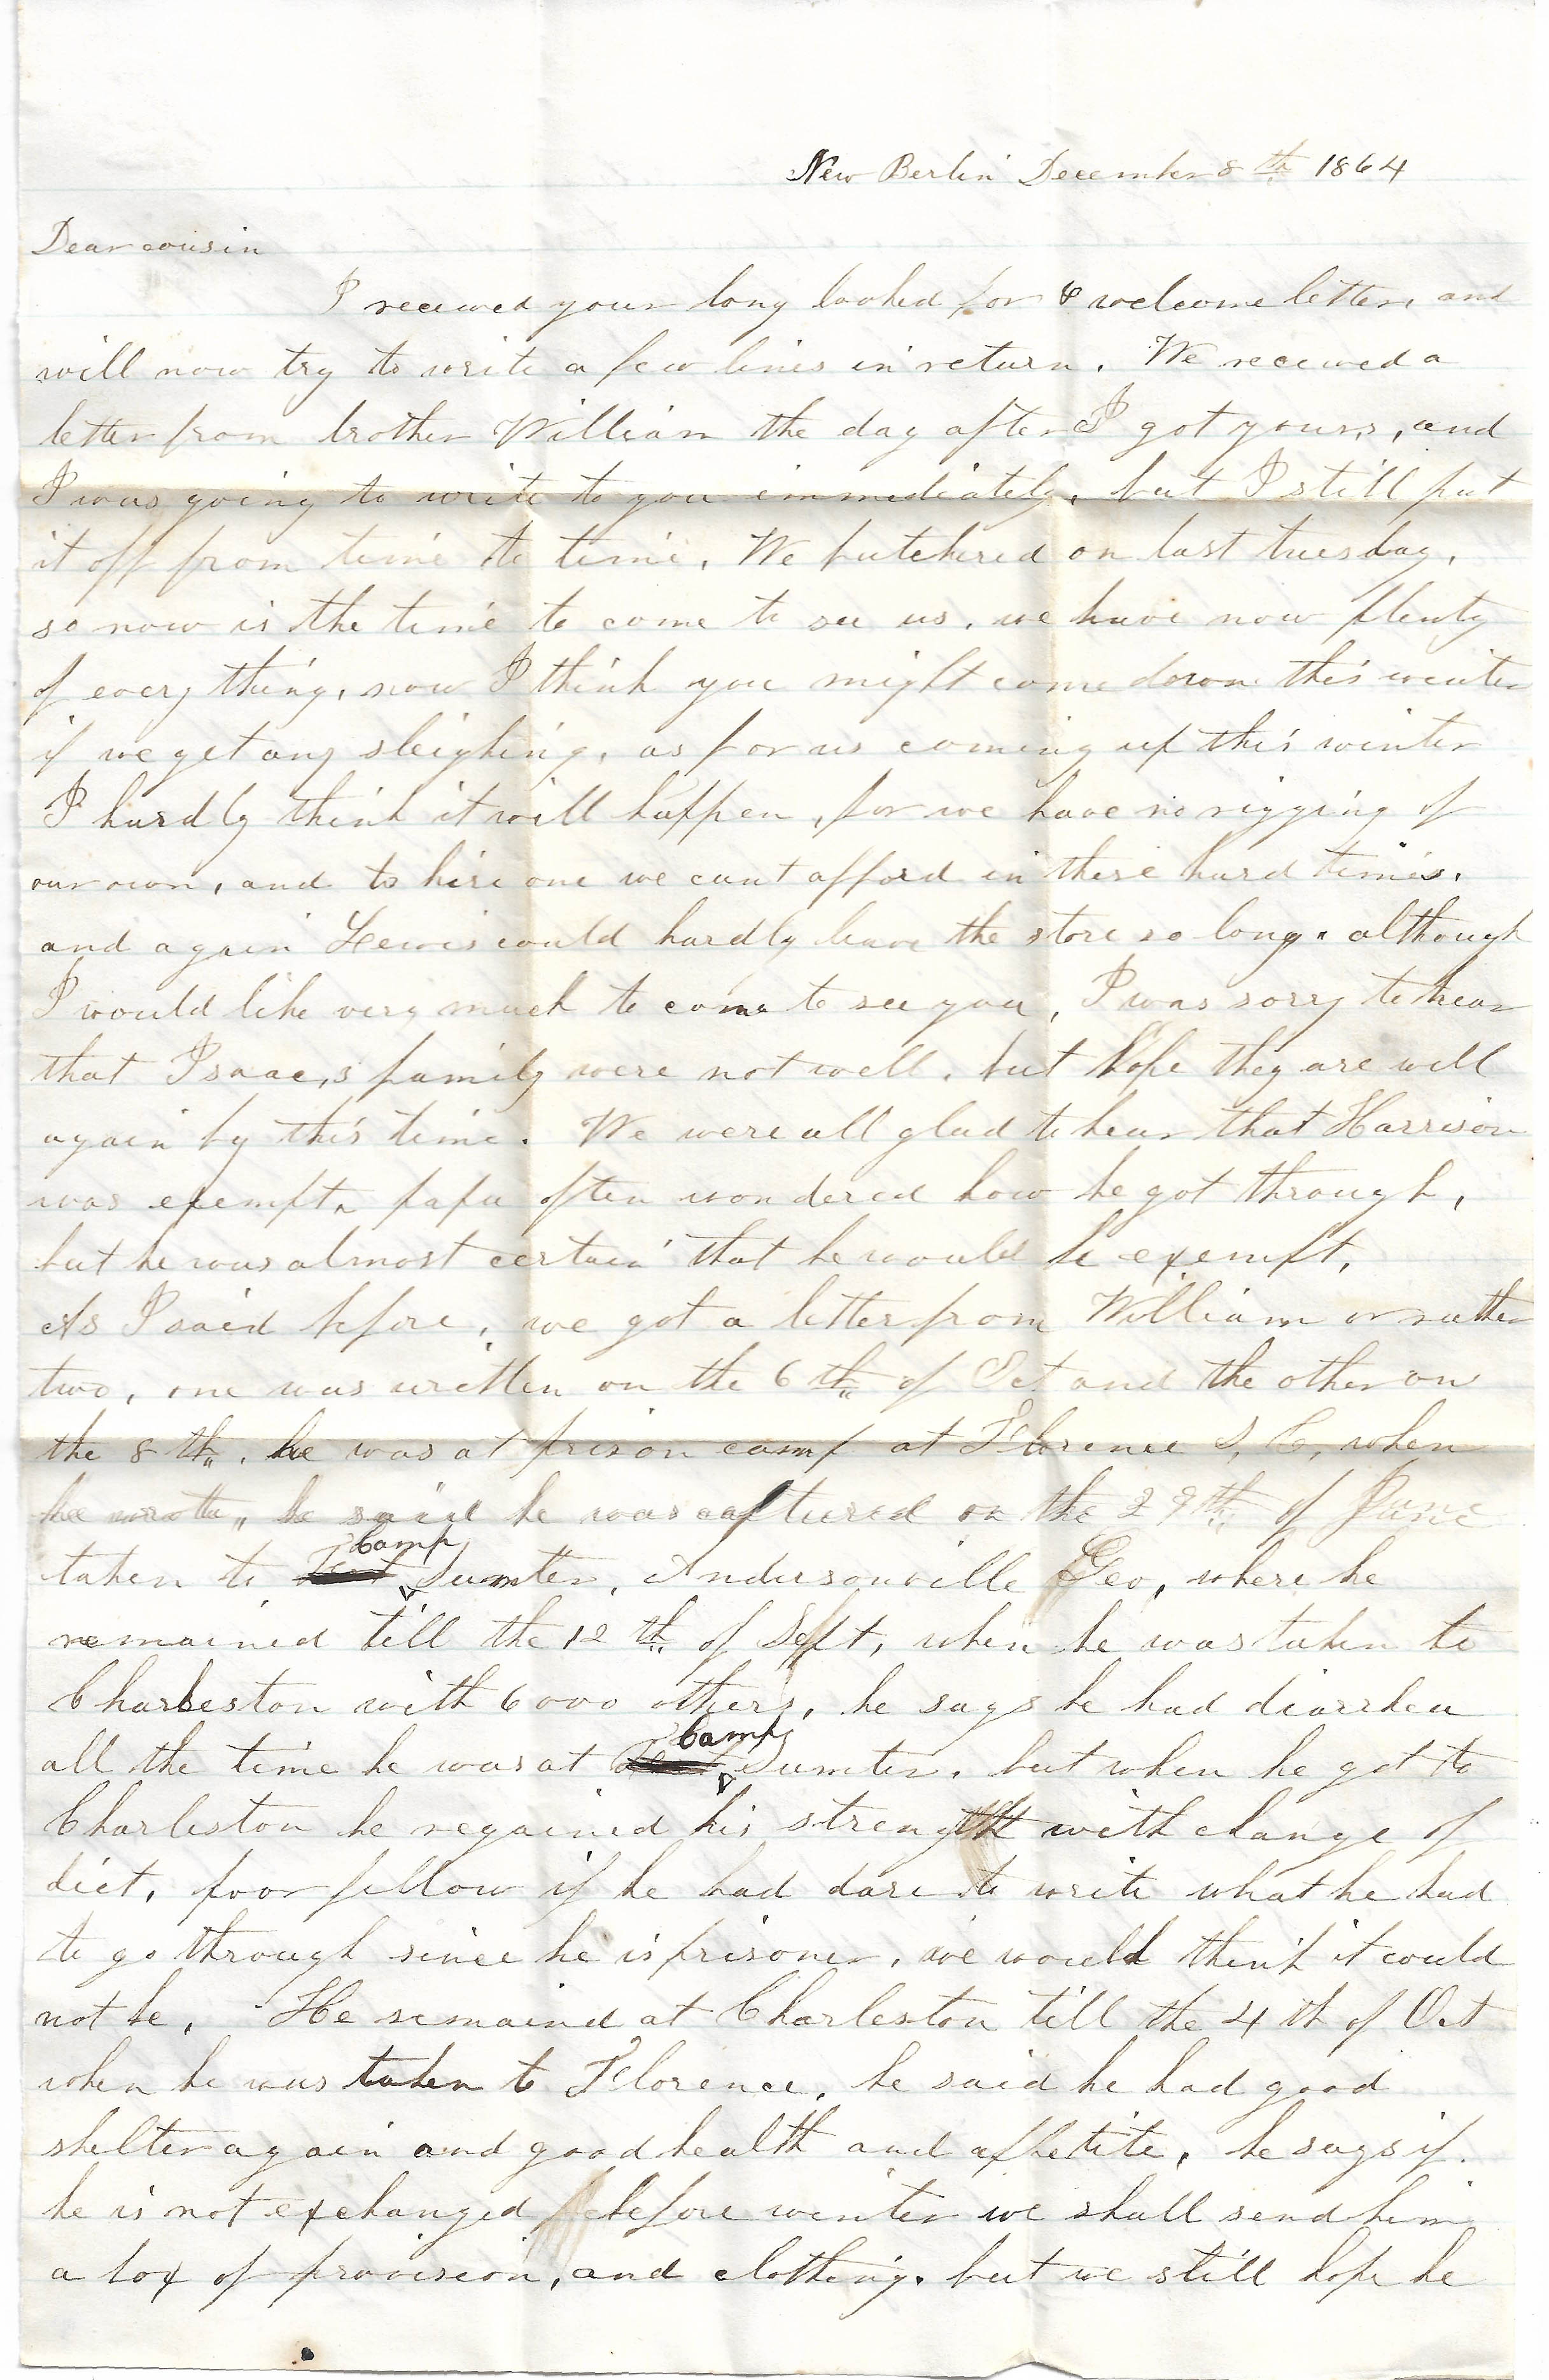 New Berlin December 8th 1864
Dear cousin
I received your long looked for & welcome letter, and
will now try to write a few lines in return. We received a
letter from brother William the day after I got yours, and
I was going to write to you immediately, but I still put
it off from time to time. We butchered on last tuesday,
so now is the time to come to see us, we have now plenty
of every thing, now I think you might come down this winter
if we get any sleighing, as for us coming up this winter
I hardly think it will happen, for we have no rigging of
our own, and to hire one we cant afford in these hard times.
and again Lewis could hardly leave the store so long. although
I would like very much to come to see you, I was sorry to hear
that Isaac,s family were not well, but hope they are well
again by this time. We were all glad to hear that Harrison
was exempt, papa often wondered how he got through,
but he was almost certain that he would be exempt.
As I said before, we got a letter from William or rather
two, one was written on the 6th of Oct and the other on
the 8th. he was at prison camp at Florence S, C, when
he wrote, he said he was captured on the 29th of June
taken to Camp Sumter, Andersonville Geo, where he
remained till the 12th of Sept, when he was taken to
Charleston with 6000 others, he says he had diarrhea
all the time he was at Camp Sumter, but when he got to
Charleston he regained his strength with change of
diet, poor fellow if he had dare to write what he had
to go through since he is prisoner, we would think it could
not be. He remaind at Charleston till the 4th of Oct
when he was taken to Florence, he said he had good
shelter again and good health and appetite, he says if
he is not exchanged before winter we shall send him
a box of provision, and clothing. but we still hope he